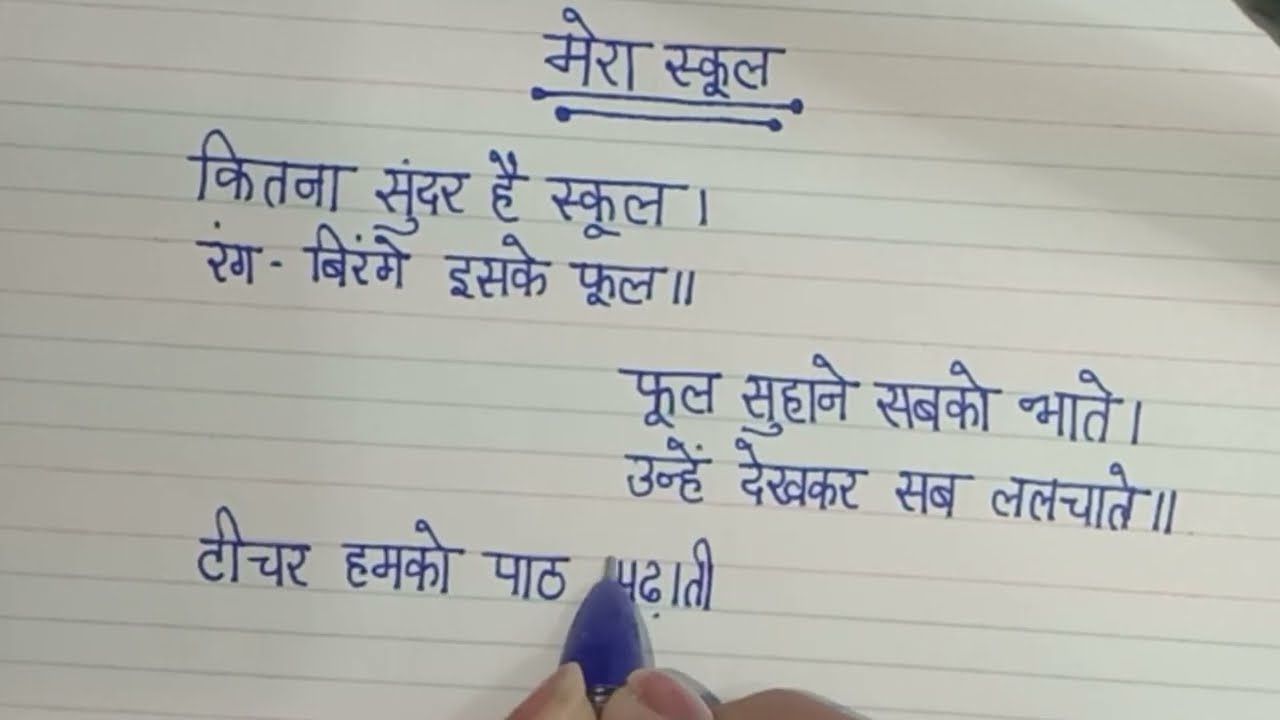 मेरा स्कूल
कितना सुंदर है स्कूल।
रंग - बिरंगे इसके फूल॥
फूल सुहाने सबको भाते।
उन्हें देखकर सब ललचाते॥
टीचर हमको पाठ पढ़ाती